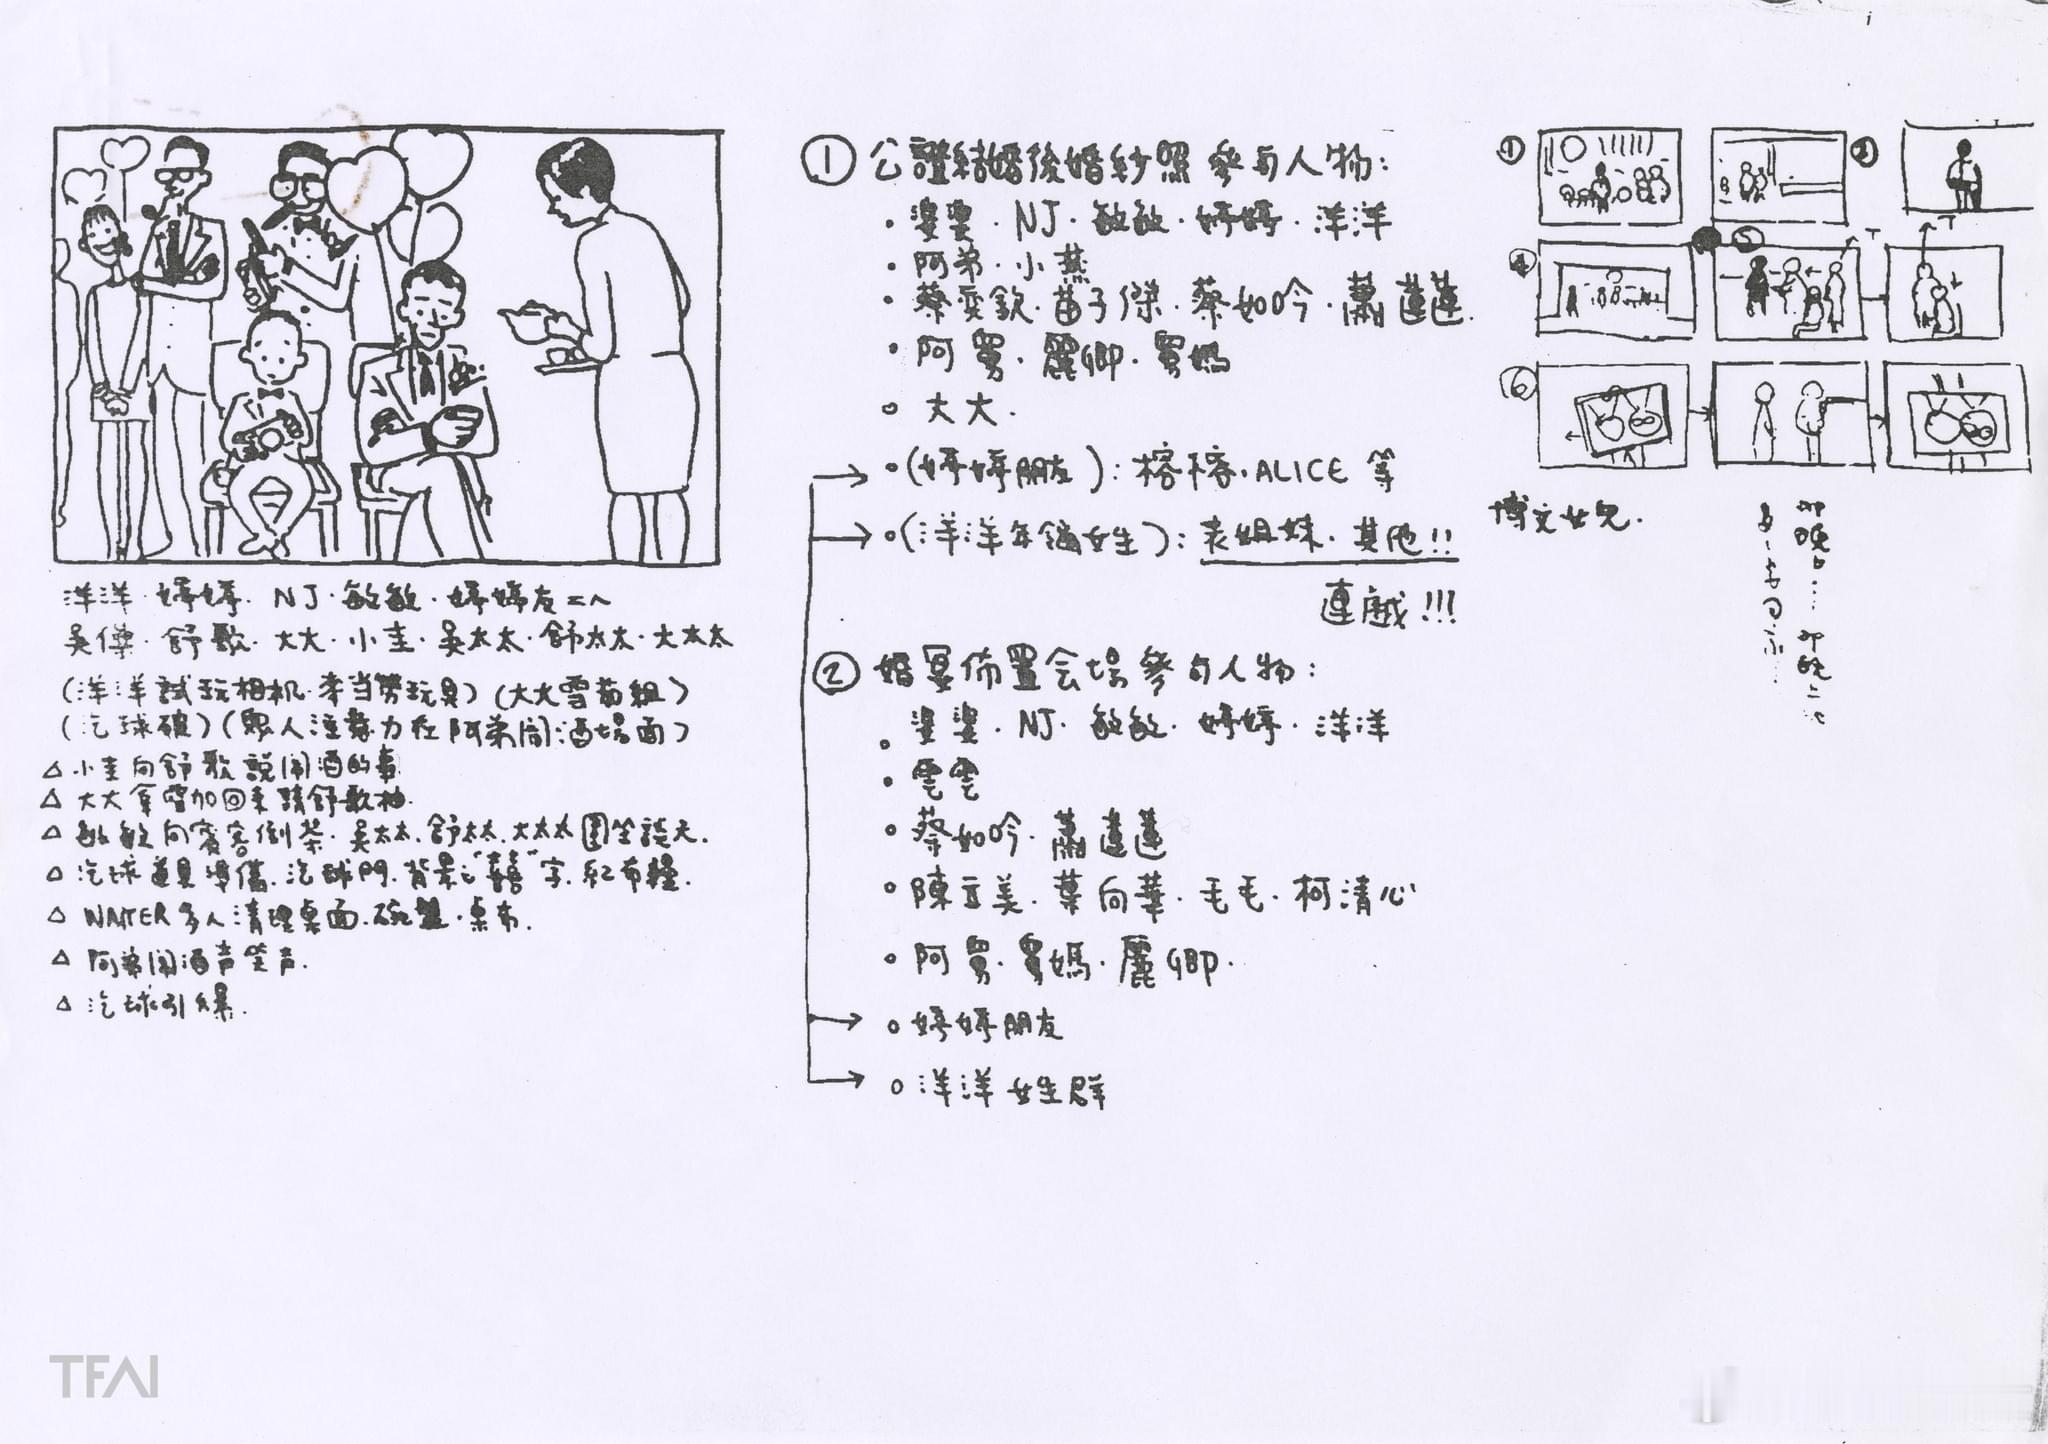 洋洋·婷婷·NJ·敏敏·婷婷友二人
吳傑·舒歌·大大·小圭·吳太太·舒太太·大太太
(洋洋試玩相机·麥当勞玩具)(大大雪茄組)
(汽球破)(眾人注意力在阿弟鬧酒場面)
△小圭向舒歌說鬧酒的事
△大大拿雪加回來請舒歌抽.
△敏敏向賓客倒茶·吳太太.舒太太.大太太圍坐談天.
△汽球道具準備.汽球門.背景之"囍"字.紅布
△WAITER多人清理桌面.碗盤·桌布.
△阿弟鬧酒声笑声.
△汽球引爆.
① 公證結婚後婚紗照參与人物:
·婆婆·NJ·敏敏·婷婷·洋洋
·阿弟·小燕
·蔡奕欽·苗子傑·蔡如吟·蕭蓮蓮.
·阿舅·麗卿·舅媽
○大大.
○(婷婷朋友):榕榕·ALICE 等
○(洋洋年齡女生):表姐妹·其他!!
連戲!!!
② 婚宴佈置会場參与人物:
·婆婆·NJ·敏敏·婷婷·洋洋
·雲雲
·蔡如吟·蕭蓮蓮
·陳立美·葉向華·毛毛·柯清心
·阿舅·舅媽·麗卿.
○婷婷朋友
○洋洋女生群
①
②
④
⑤
T
T
⑥
博文女兒.
TFAI